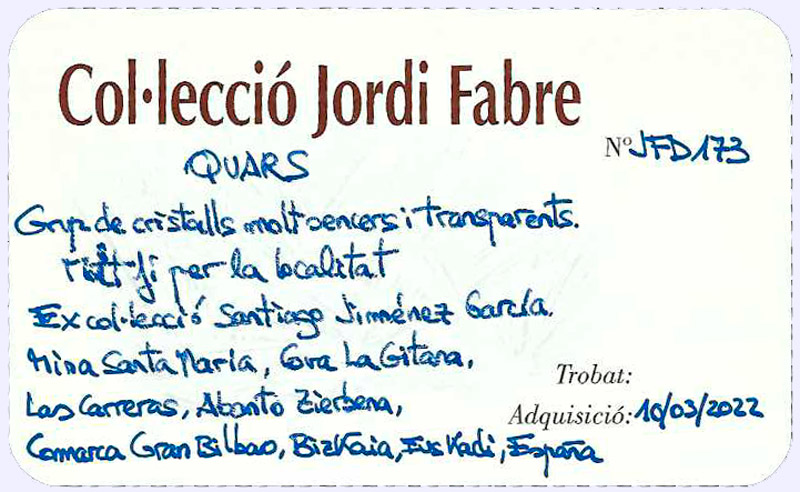 Col·lecció Jordi Fabre
Nº JFD173
QUARS
Grup de cristalls molt sencers i transparents.
per la localitat
Ex col·lecció Santiago Jiménez García.
Mina Santa María, Cova La Gitana,
Las Carreras, Abanto Zierbena,
Comarca Gran Bilbao, Bizkaia, Euskadi, España
Trobat:
Adquisició: 10/03/2022